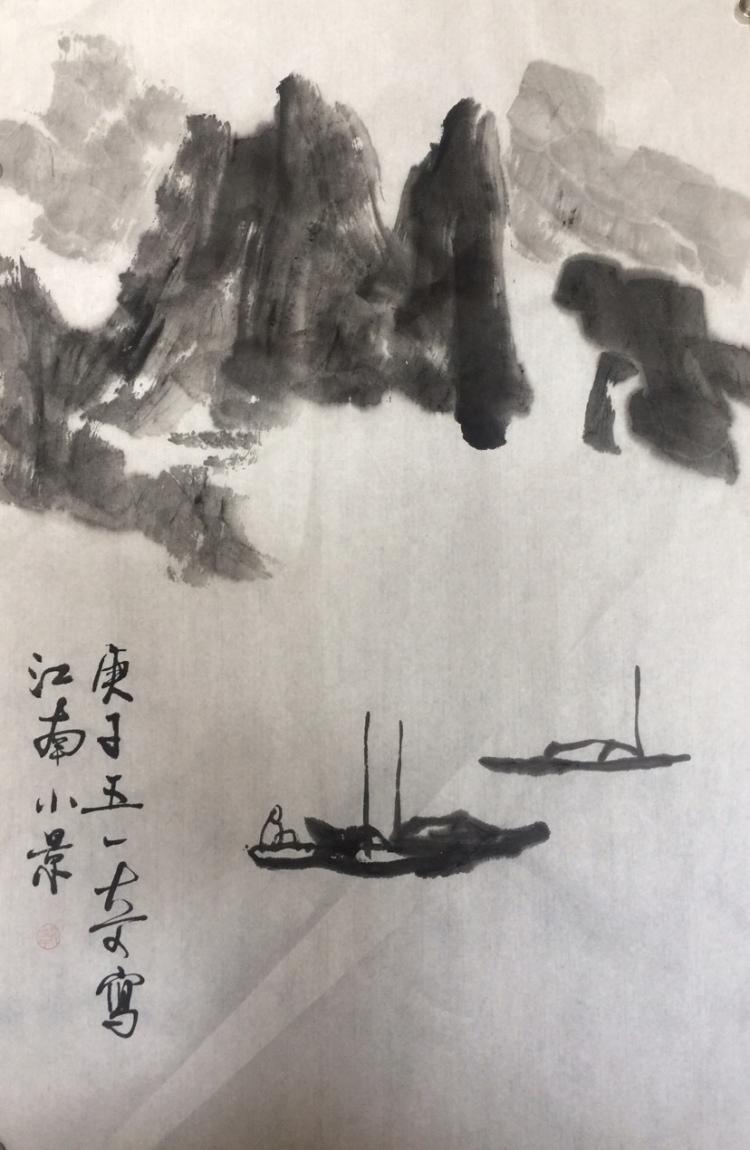 庚子五一大寫
江南小景